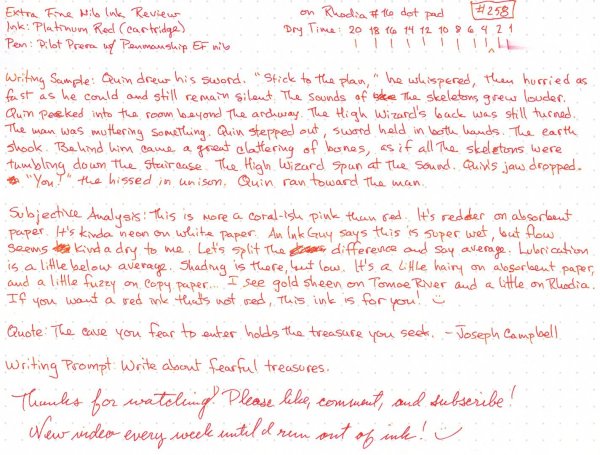 Extra Fine Nib Ink Review on Rhodia #16 dot pad #258
Ink: Platinum Red (cartridge) Dry Time: 20 18 16 14 12 10 8 6 4 2 1
Pen: Pilot Prera w/ Penmanship EF nib
Writing Sample: Quin drew his sword. "Stick to the plan," he whispered, then hurried as
fast as he could and still remain silent. The sounds of the skeletons grew louder.
Quin peeked into the room beyond the archway. The High Wizard's back was still turned.
The man was muttering something. Quin stepped out, sword held in both hands. The earth
shook. Behind him came a great clattering of bones, as if all the skeletons were
tumbling down the staircase. The High Wizard spun at the sound. Quin's jaw dropped.
"You!" the hissed in unison. Quin ran toward the man.
Subjective Analysis: This is more a coral-ish pink than red. It's redder on absorbent
paper. It's kinda neon on white paper. An Ink Guy says this is super wet, but flow
seems kinda dry to me. Let's split the difference and say average. Lubrication
is a little below average. Shading is there, but low. It's a little hairy on absorbent paper,
and a little fuzzy on copy paper... I see gold sheen on Tomoe River and a little on Rhodia.
If you want a red ink that's not red, this ink is for you!
Quote: The cave you fear to enter holds the treasure you seek. - Joseph Campbell
Writing Prompt: Write about fearful treasures.
Thanks for watching! Please like, comment, and subscribe!
New video every week until I run out of ink!